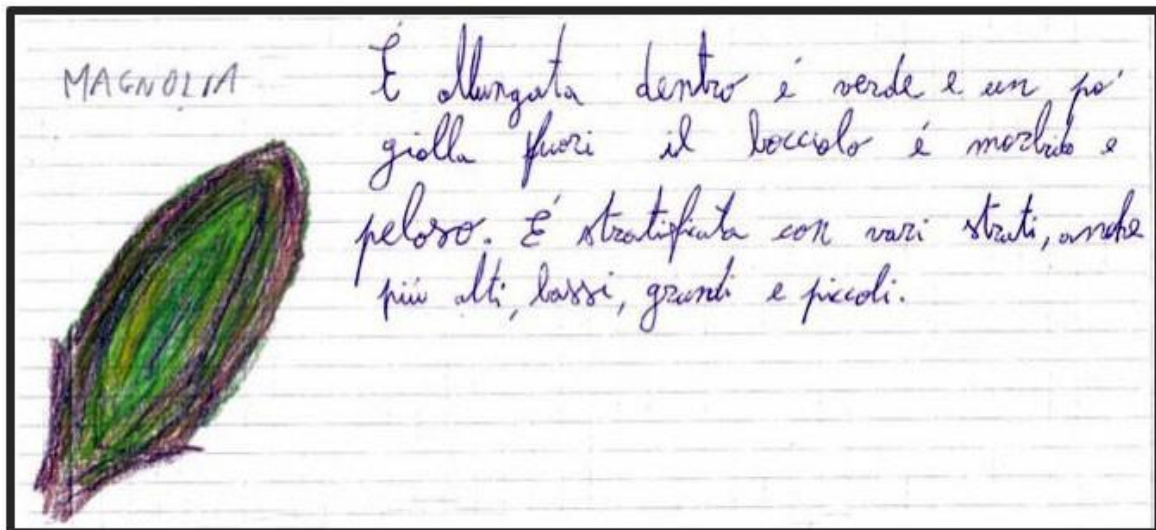 MAGNOLIA
É allungata dentro é verde e un pó
gialla fuori il bocciolo é morbido e
peloso. É stratificata con vari strati, anche
più alti, bassi, grandi e piccoli.